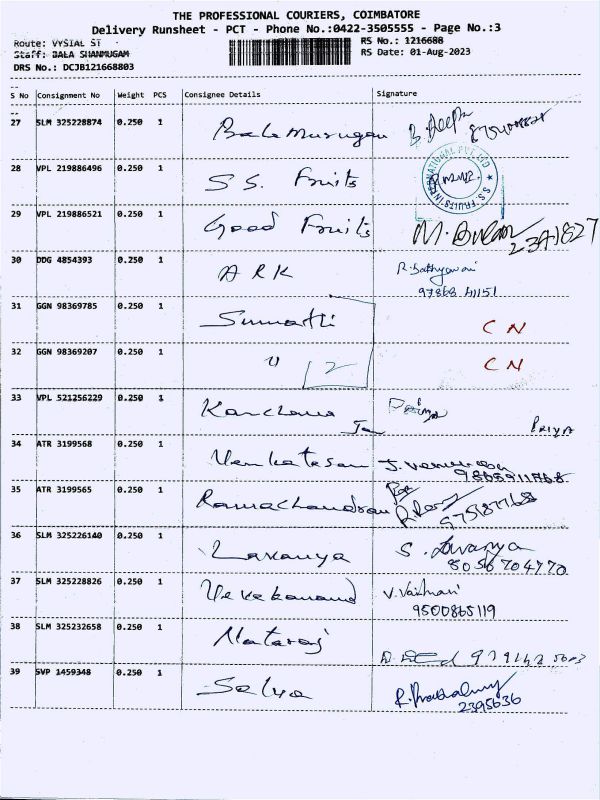 THE PROFESSIONAL COURIERS, COIMBATORE
Delivery Runsheet - PCT - Phone No.:0422-3505555 - Page No.:3
Route: VYSIAL ST
RS No.: 1216688
Staff: BALA SHANMUGAM
RS Date: 01-Aug-2023
DRS No.: DCJB121668803
S No Consignment No Weight PCS Consignee Details Signature
27 SLM 325228874 0.250 1 Bala Murugan B. Deepa
28 VPL 219886496 0.250 1 S S. Fruits
29 VPL 219886521 0.250 1 Good Fruits M. 2391827
30 DDG 4854393 0.250 1 A R K R. Sathyavani
97868 41151
31 GGN 98369785 0.250 1 Sumathi C N
32 GGN 98369207 0.250 1 " 2 C N
33 VPL 521256229 0.250 1 Kanchana PRIYA
34 ATR 3199568 0.250 1 Venkatesan
35 ATR 3199565 0.250 1 Ramachandran
36 SLM 325226140 0.250 1 Lavanya S. Lavanya
8056704770
37 SLM 325228826 0.250 1 Vekekanand V. Vaishnavi
9500865119
38 SLM 325232658 0.250 1 Nataraj
39 SVP 1459348 0.250 1 Selva
2395636